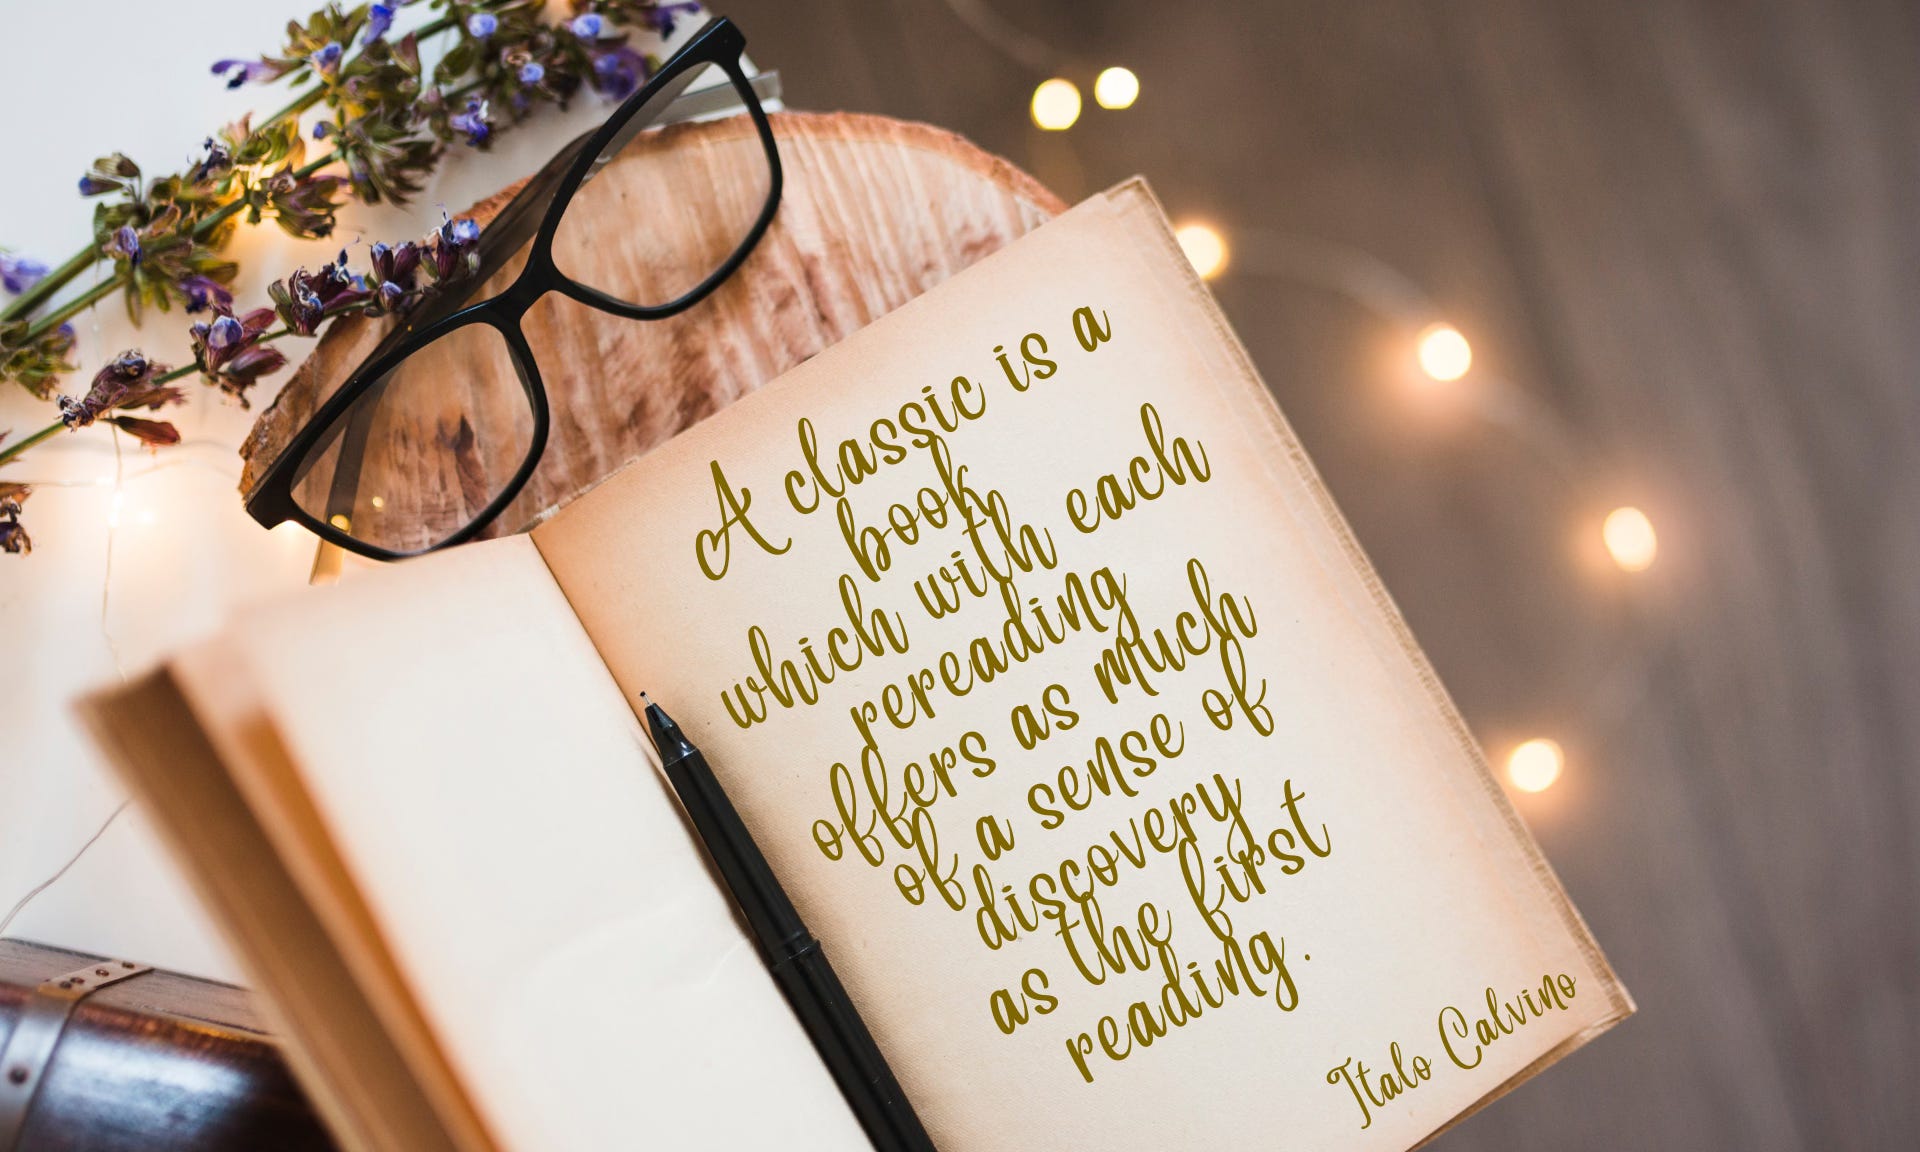 A classic is a
book
which with each
rereading
offers as much
of a sense of
discovery
as the first
reading.
Italo Calvino